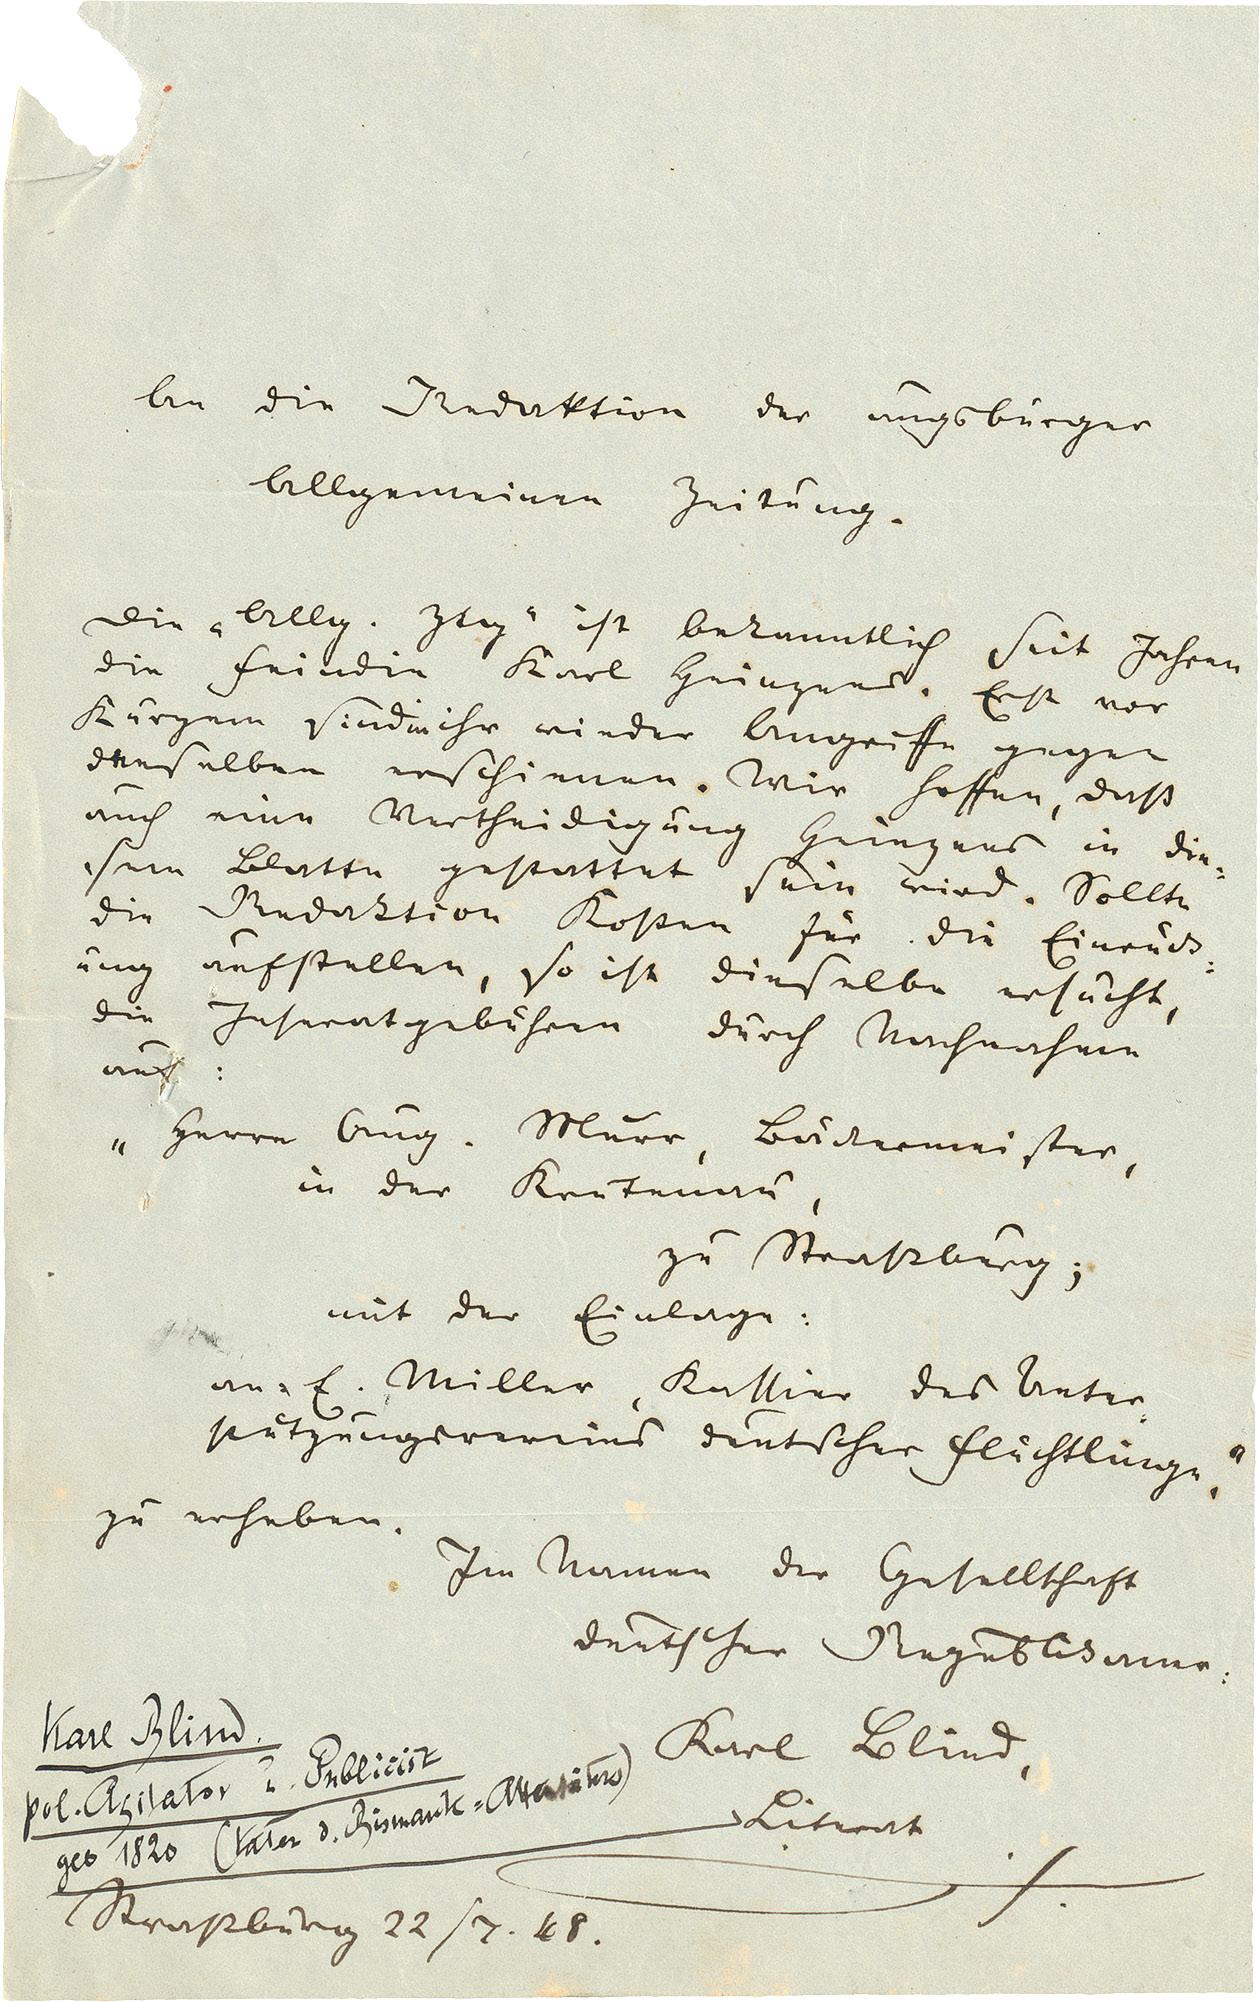 An die Redaktion der Augsburger
Allgemeinen Zeitung.
Die „Allg. Ztg“ ist bekanntlich seit Jahren
die Feindin Karl Heinzens. Erst vor
Kurzem sind in ihr wieder Angriffe gegen
denselben erschienen. Wir hoffen, daß
auch eine Vertheidigung Heinzens in die-
sem Blatte gestattet sein wird. Sollte
die Redaktion Kosten für die Einrück-
ung aufstellen, so ist dieselbe ersucht,
die Inseratgebühren durch Nachnahme
auf:
„Herrn Aug. Murr, Bäckermeister,
in der Krutenau,
zu Straßburg;
mit der Einlage:
an: E. Miller, Kassier des Unter-
stützungsvereins deutscher Flüchtlinge,“
zu erheben.
Im Namen der Gesellschaft
deutscher Republikaner:
Karl Blind,
Literat
Karl Blind.
pol. Agitator u. Publicist
geb 1820 (Vater d. Bismark-Attentäters)
Straßburg 22/7. 48.